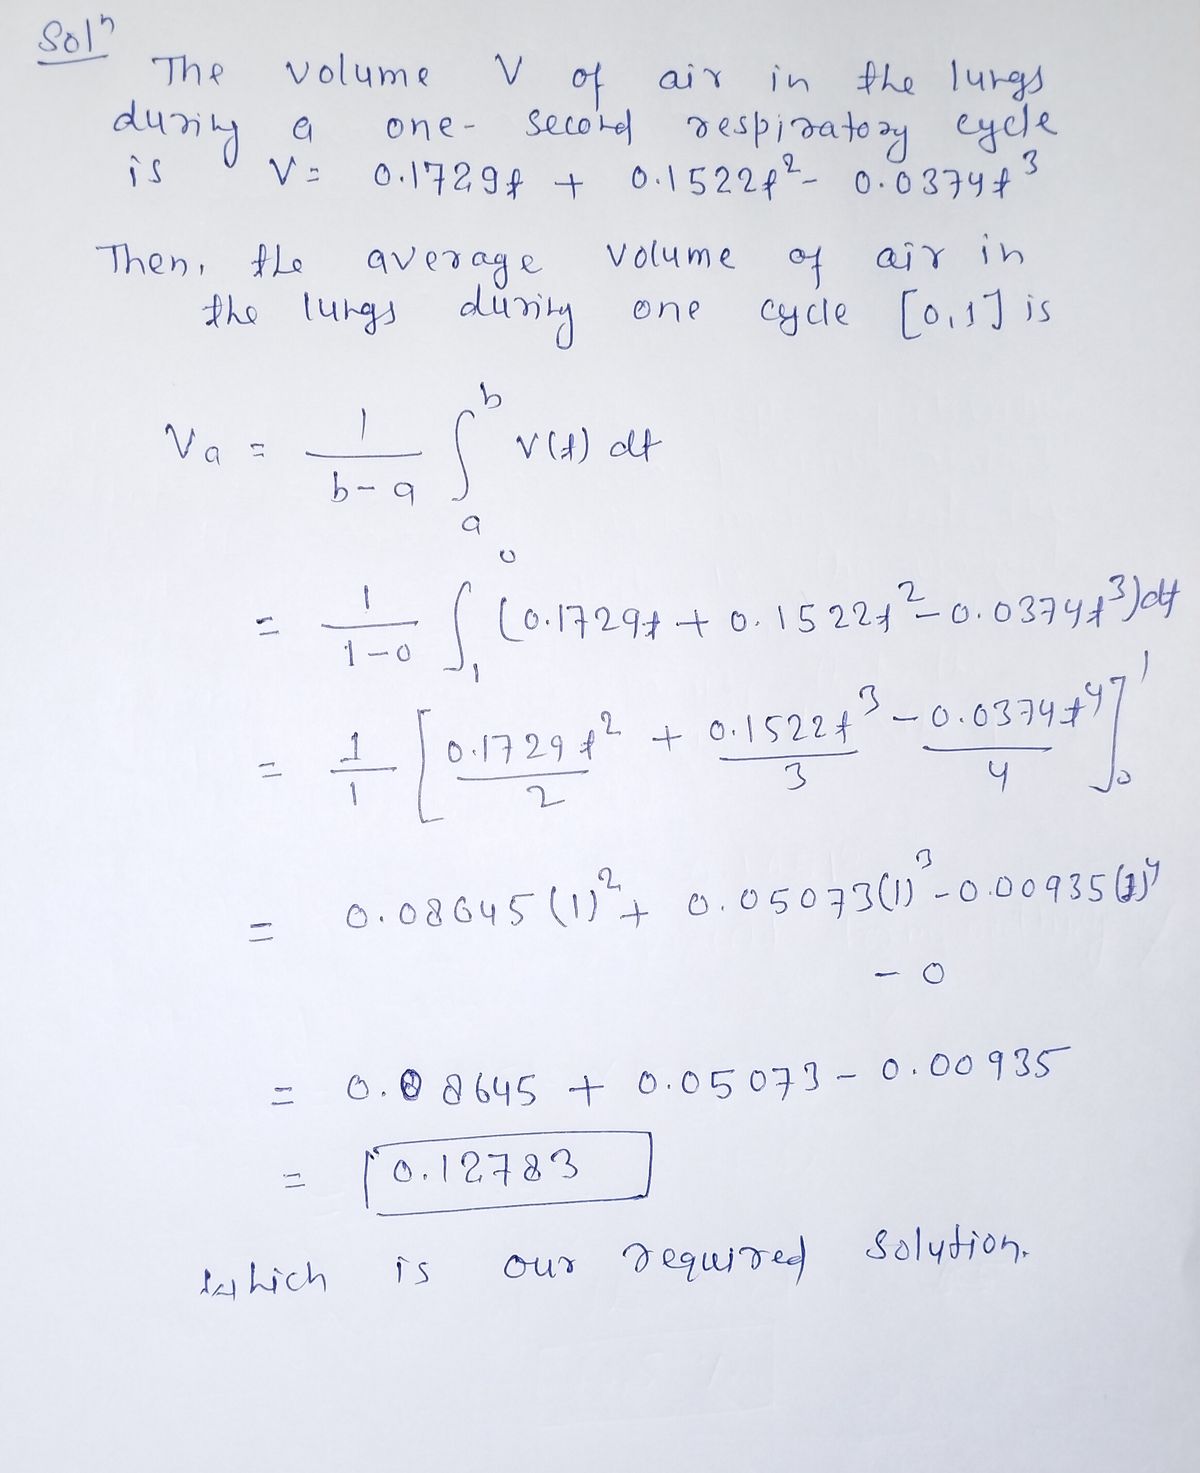 Solⁿ
The volume V of air in the lungs
during a one-second respiratory cycle
is V = 0.1729t + 0.1522t² - 0.0374t³
Then, the average volume of air in
the lungs during one cycle [0,1] is
Va = 1/(b-a) ∫ₐᵇ V(t) dt
= 1/(1-0) ∫₁⁰ (0.1729t + 0.1522t² - 0.0374t³)dt
= 1/1 [0.1729t²/2 + 0.1522t³/3 - 0.0374t⁴/4]₀¹
= 0.08645(1)² + 0.05073(1)³ - 0.00935(1)⁴
- 0
= 0.08645 + 0.05073 - 0.00935
= 0.12783
which is our required solution.